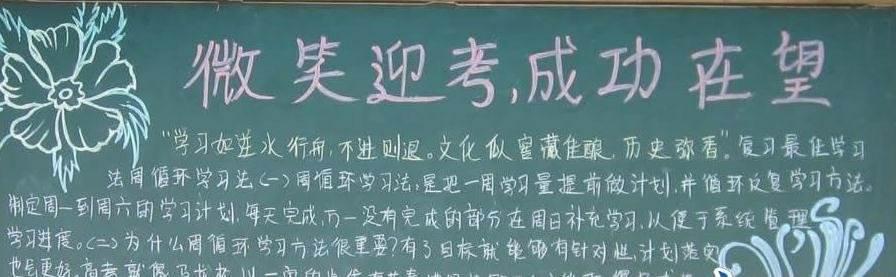 微笑迎考,成功在望
"学习如逆水行舟,不进则退。文化似窖藏佳酿,历史弥香"。复习最佳学习
法周循环学习法(一)周循环学习法,是把一周学习量提前做计划,并循环反复学习方法。
制定周一到周六的学习计划,每天完成,万一没有完成的部分在周日补充学习,以便于系统管理
学习进度。(二)为什么周循环学习方法很重要?有了目标就能够有针对性,计划落实
也会更好,高考就像